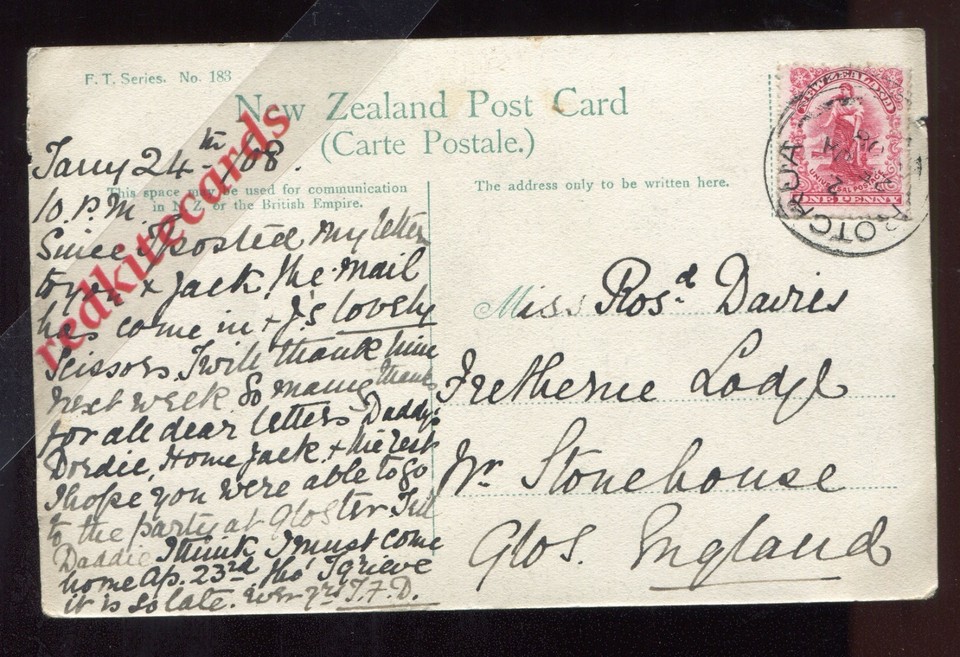 F. T. Series. No. 183
New Zealand Post Card
(Carte Postale.)
This space may be used for communication
in N.Z. or the British Empire.
The address only to be written here.
NEW ZEALAND
UNIVERSAL POSTAGE
ONE PENNY
ROTORUA
redkitecards
Jany 24th /08.
10. P.M.
Since I posted my letter
to you & Jack, the mail
has come in & J's lovely
Scissors. I will thank him
next week. So many thanks
for all dear letters, Daddy's
Dordie, Home Jack, & the rest
I hope you were able to go
to the party at Gloster Tell
Daddie I think I must come
home Ap. 23rd, tho' I grieve
it is so late. Ever yrs J.F.D.
Miss Ros.d Davies
Fretherne Lodge
Nr Stonehouse
Glos. England